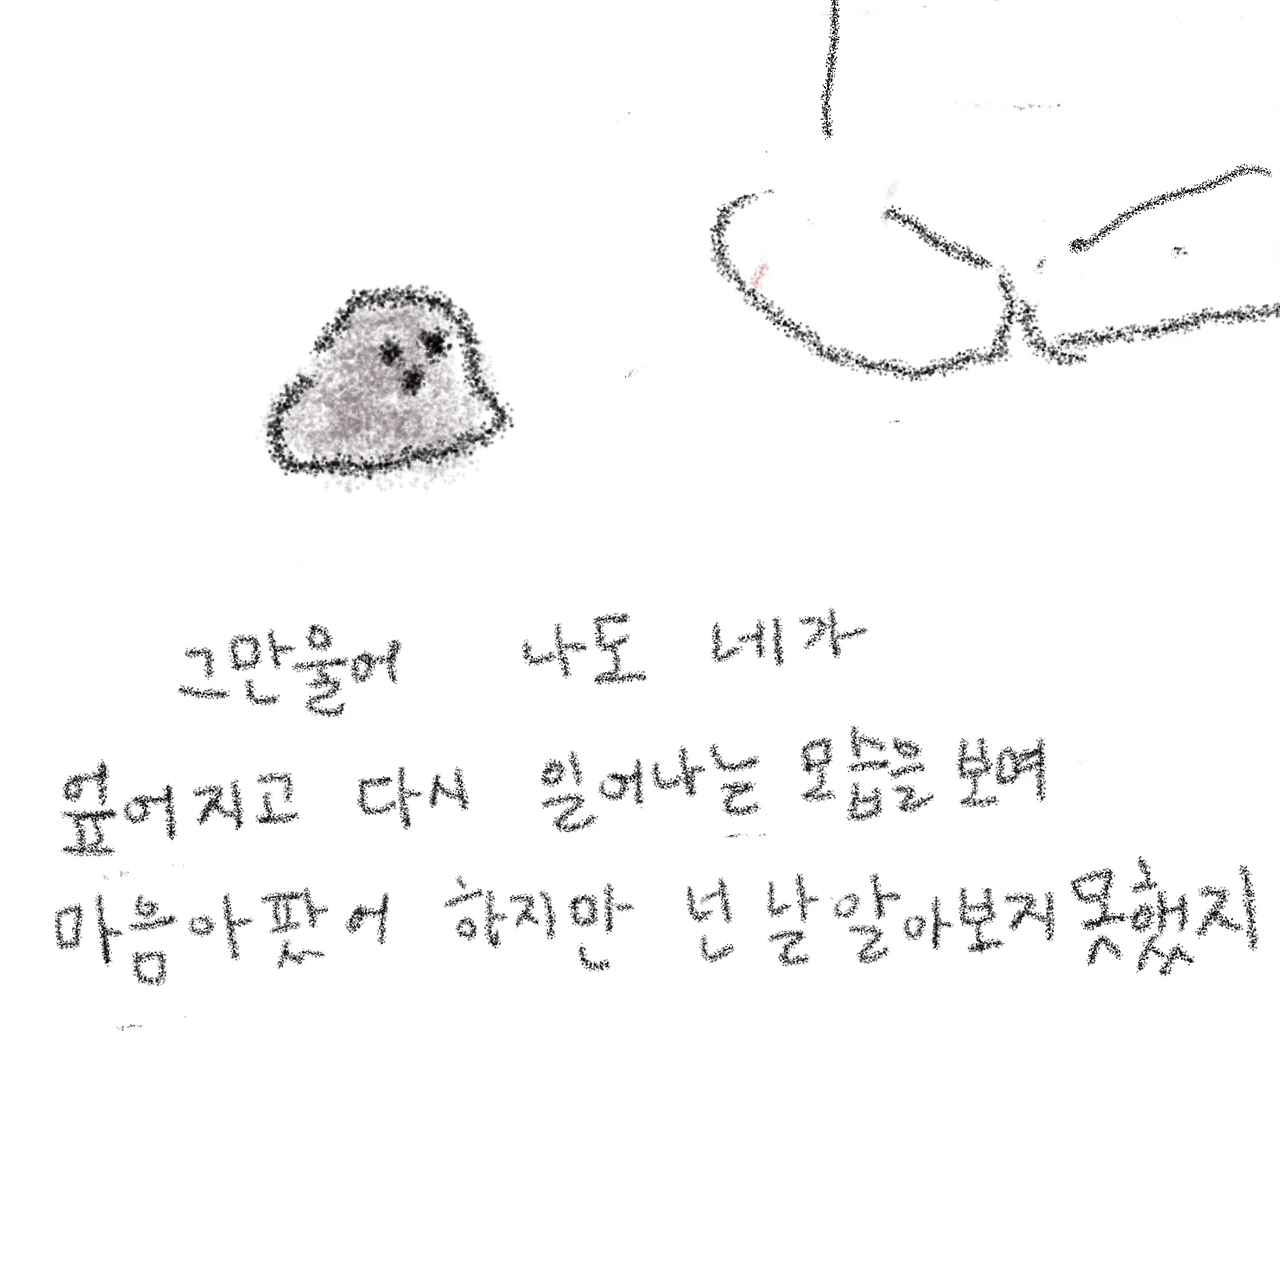 그만울어 나도 네가
엎어지고 다시 일어나는 모습을 보며
마음아팠어 하지만 넌 날 알아보지 못했지